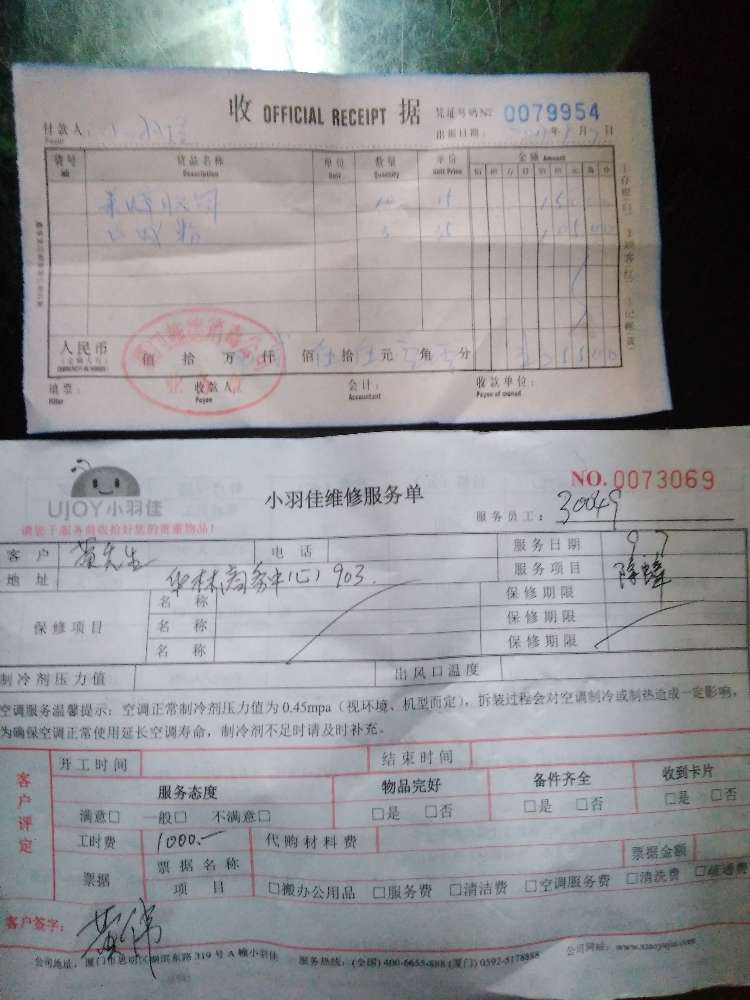 收 OFFICIAL RECEIPT 据 凭证号码№ 0079954
付款人: 小羽佳 出据日期: 年 月 7 日
Payer
货号 货品名称 单位 数量 单价 金额 Amount
No Description Unit Quantity Unit Price 佰 拾 万 仟 佰 拾 元 角 分
10 15 150 00
3 35 105 00
人民币 佰 拾 万 仟 佰 伍拾 伍元 零角 零分 255 00
填票: 收款人: 会计: 收款单位:
Filler Payee Accountant Payee of owned
UJOY小羽佳 小羽佳维修服务单 NO. 0073069
服务员工: 30049
请您于服务前收拾好您的贵重物品!
客户 黄先生 电话 服务日期 9.7
地址 华林商务中心1903. 服务项目 除蟑
保修项目 名称 保修期限
名称 保修期限
名称 保修期限
制冷剂压力值 出风口温度
空调服务温馨提示:空调正常制冷剂压力值为 0.45mpa(视环境、机型而定),拆装过程会对空调制冷或制热造成一定影响,
为确保空调正常使用延长空调寿命,制冷剂不足时请及时补充。
开工时间 结束时间
客户评定 服务态度 物品完好 备件齐全 收到卡片
满意□ 一般□ 不满意□ □是 □否 □是 □否 □是 □否
工时费 1000.— 代购材料费
票据 票据名称 票据金额
项目 □搬办公用品 □服务费 □清洁费 □空调服务费 □清洗费 □疏通费
客户签字: 黄伟
公司地址:厦门市思明区湖滨东路 319 号 A 幢小羽佳 服务热线:(全国) 400-6655-888 (厦门) 0592-5178888 公司网站:www.xiaoyujia.com